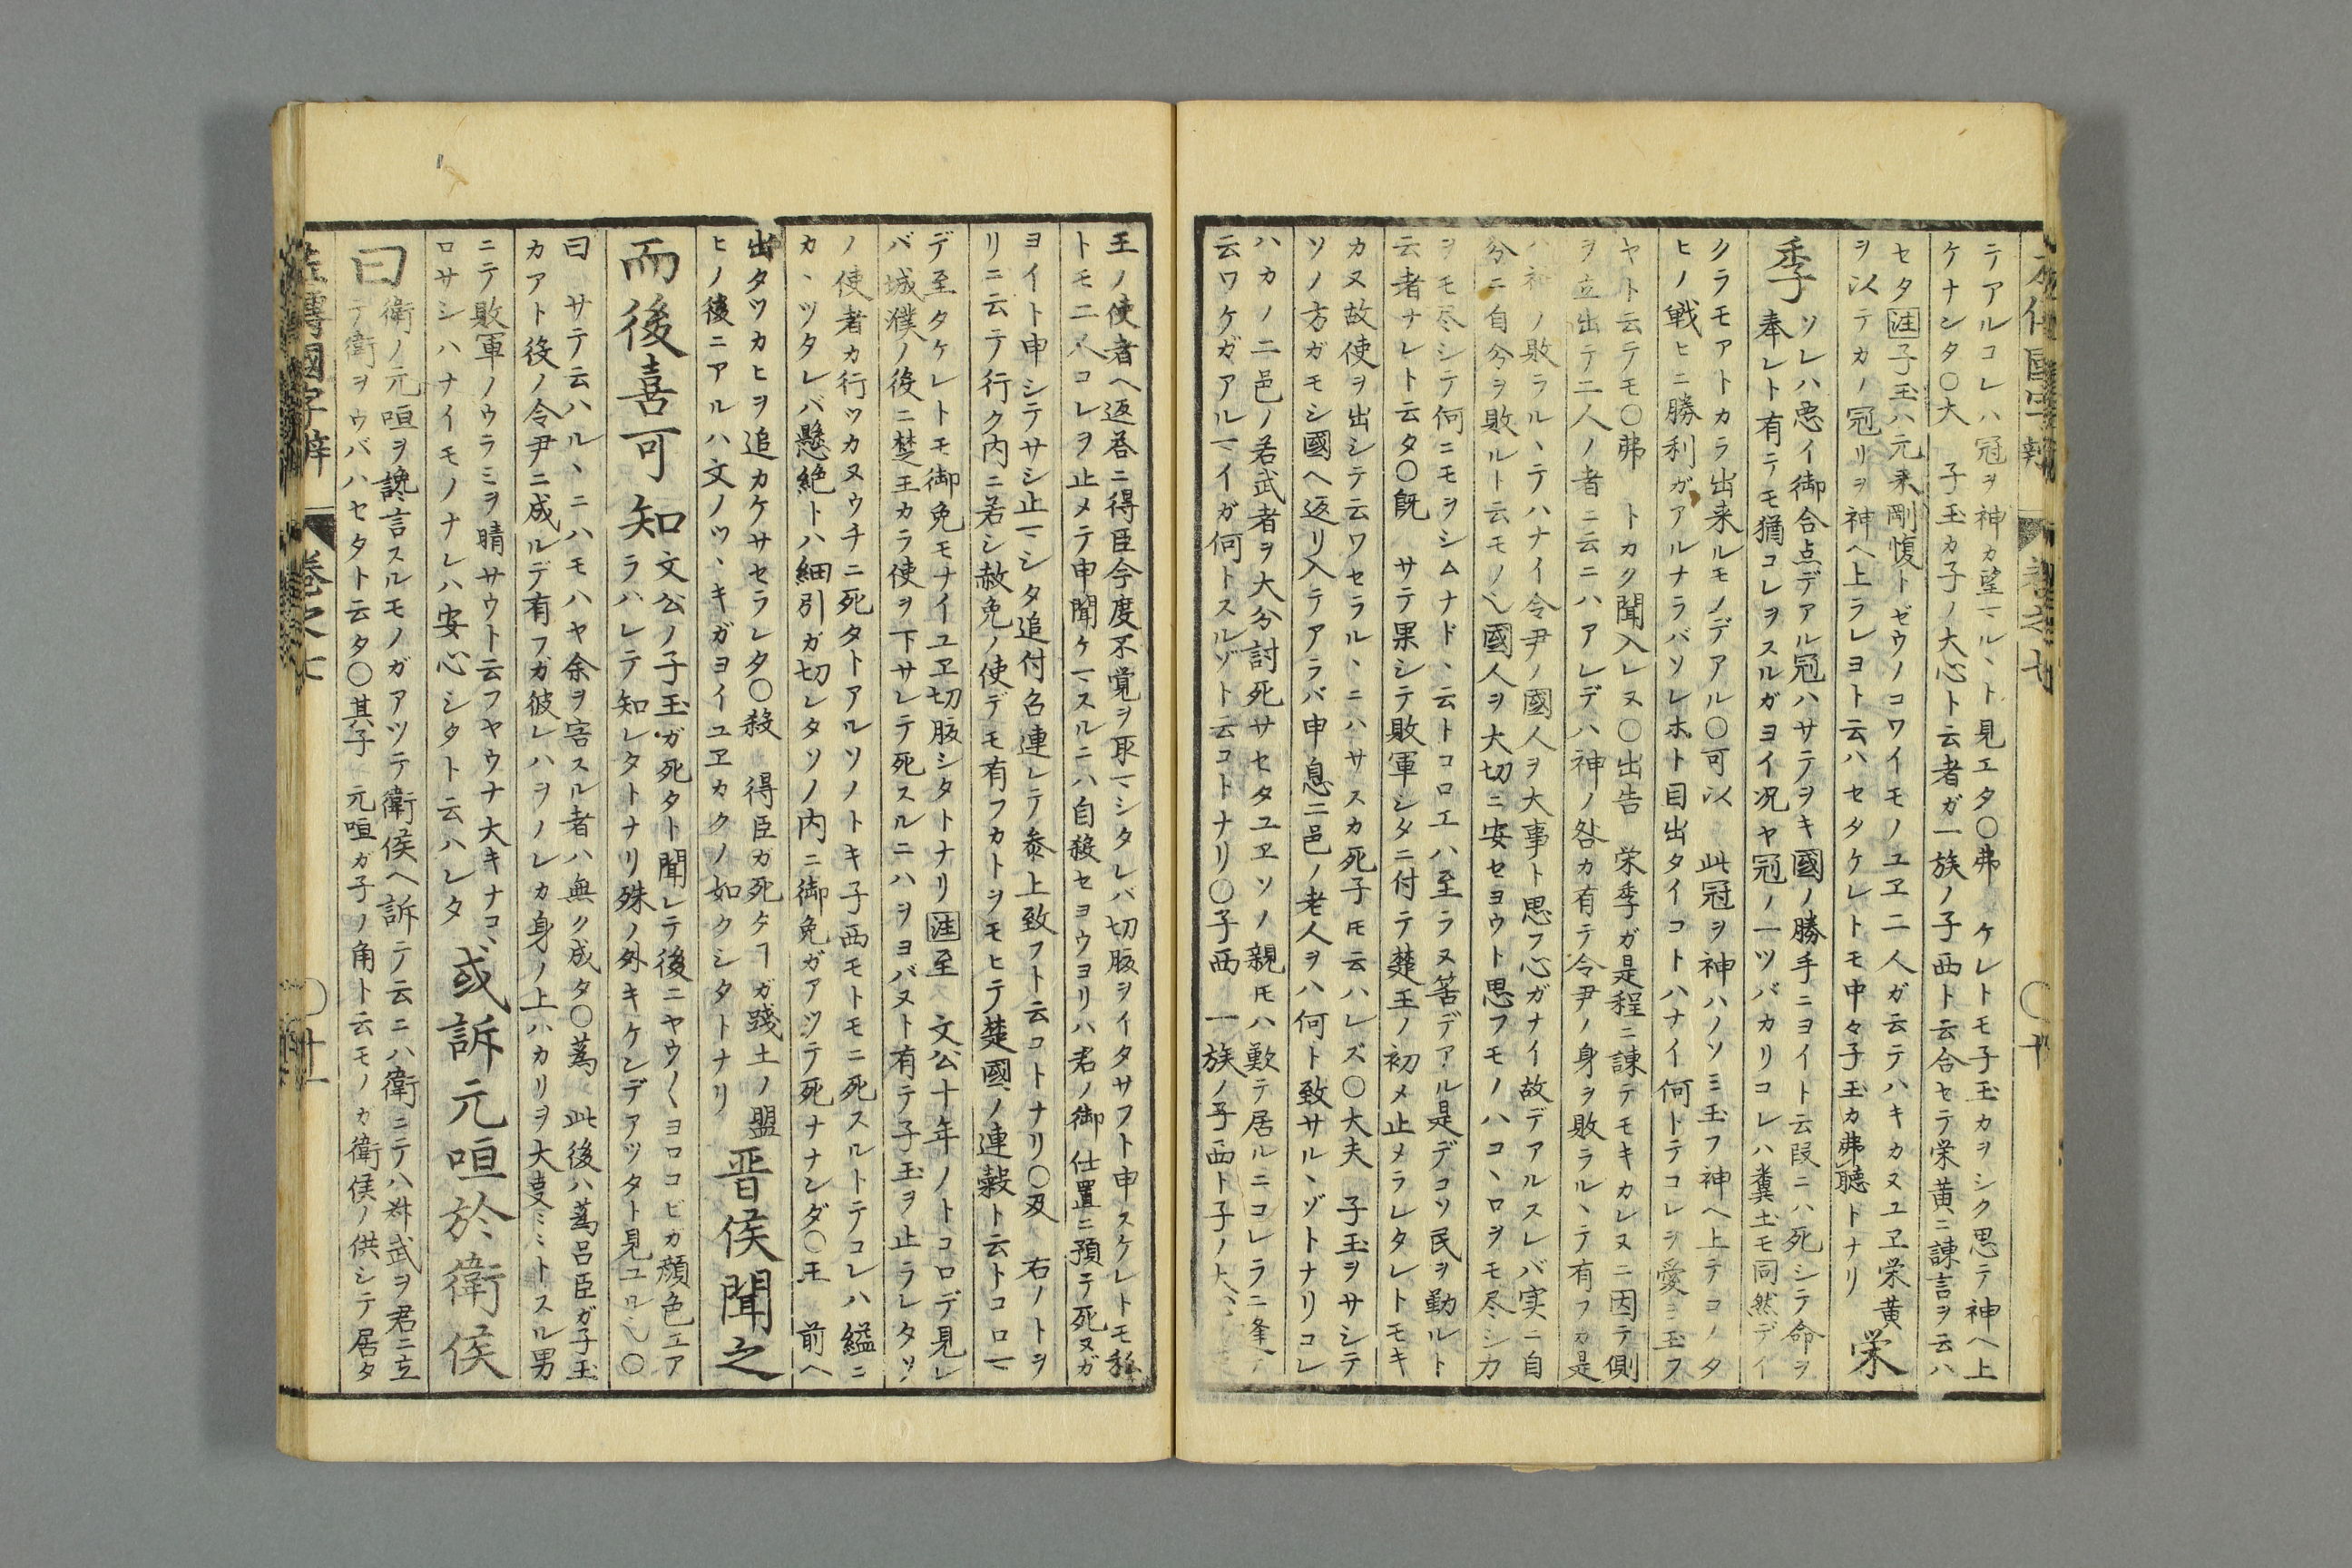 テアルコレハ冠ヲ神カ望マルヽト見エタ〇弗　ケレトモ子玉カヲシク思テ神ヘ上
ケナシタ〇大　子玉カ子ノ大心ト云者ガ一族ノ子西ト云合セテ栄黄ニ諫言ヲ云ハ
セタ注子玉ハ元来剛愎トゼウノコワイモノユヱ二人ガ云テハキカヌユヱ栄黄
ヲ以テカノ冠リヲ神ヘ上ラレヨト云ハセタケレトモ中々子玉カ弗聴トナリ
栄
季
ソレハ悪イ御合点デアル冠ハサテヲキ國ノ勝手ニヨイト云段ニハ死シテ命ヲ
奉レト有テモ猶コレヲスルガヨイ况ヤ冠ノ一ツバカリコレハ糞土モ同然デイ
クラモアトカラ出来ルモノデアル〇可以　此冠ヲ神ハノソミ玉フ神ヘ上テコノタ
ヒノ戦ヒニ勝利ガアルナラバソレホト目出タイコトハナイ何トテコレヲ愛ミ玉フ
ヤト云テモ〇弗　トカク聞入レヌ〇出告　栄季ガ是程ニ諫テモキカレヌニ因テ側
ヲ立出テ二人ノ者ニ云ニハアレデハ神ノ咎カ有テ令尹ノ身ヲ敗ラルヽテ有フカ是
ハ神ノ敗ラルヽテハナイ令尹ノ國人ヲ大事ト思フ心ガナイ故デアルスレバ実ニ自
分ニ自分ヲ敗ルト云モノ也國人ヲ大切ニ安セヨウト思フモノハコヽロヲモ尽シカ
ヲモ尽シテ何ニモヲシムナドヽ云トコロエハ至ラヌ筈デアル是デコソ民ヲ勤ルト
云者ナレト云タ〇既　サテ果シテ敗軍シタニ付テ楚王ノ初メ止メラレタレトモキ
カヌ故使ヲ出シテ云ワセラルヽニハサスカ死子𪜈云ハレズ〇大夫　子玉ヲサシテ
ソノ方ガモシ國ヘ返リ入テアラバ申息二邑ノ老人ヲハ何ト致サルヽゾトナリコレ
ハカノ二邑ノ若武者ヲ大分討死サセタユヱソノ親𪜈ハ歎テ居ルニコレラニ逢テ
云ワケガアルマイガ何トスルゾト云コトナリ〇子西　一族ノ子西ト子ノ大
王ノ使者ヘ返答ニ得臣今度不覚ヲ取マシタレバ切腹ヲイタサフト申スケレトモ私
トモ二人コレヲ止メテ申聞ケマスルニハ自殺セヨウヨリハ君ノ御仕置ニ預テ死ヌガ
ヨイト申シテサシ止マシタ追付召連レテ参上致フト云コトナリ〇及　右ノトヲ
リニ云テ行ク内ニ若シ赦免ノ使デモ有フカトヲモヒテ楚國ノ連穀ト云トコロマ
デ至タケレトモ御免モナイユヱ切腹シタトナリ注至　文公十年ノトコロデ見レ
バ城濮ノ後ニ楚王カラ使ヲ下サレテ死スルニハヲヨバヌト有テ子玉ヲ止ラレタソ
ノ使者カ行ツカヌウチニ死タトアルソノトキ子西モトモニ死スルトテコレハ縊ニ
カヽツタレバ懸絶トハ細引ガ切レタソノ内ニ御免ガアツテ死ナナンダ〇王　前ヘ
出タツカヒヲ追カケサセラレタ〇殺　得臣ガ死タヿガ踐土ノ盟
ヒノ後ニアルハ文ノツヽキガヨイユヱカクノ如クシタトナリ
晋侯聞之
而後喜可知
文公ノ子玉ガ死タト聞レテ後ニヤウ〳〵ヨロコビカ顔色エア
ラハレテ知レタトナリ殊ノ外キケンデアツタト見ユル也〇
曰　サテ云ハルヽニハモハヤ余ヲ害スル者ハ無ク成タ〇蔿　此後ハ蔿呂臣ガ子玉
カアト役ノ令尹ニ成ルデ有フガ彼レハヲノレカ身ノ上ハカリヲ大事ミミトスル男
ニテ敗軍ノウラミヲ晴サウト云フヤウナ大キナコヽ
ロサシハナイモノナレハ安心シタト云ハレタ
或訴元咺於衛侯
曰
衛ノ元咺ヲ讒言スルモノガアツテ衛侯ヘ訴テ云ニハ衛ニテハ叔武ヲ君ニ立
テ衛ヲウバハセタト云タ〇其子　元咺ガ子ノ角ト云モノカ衛侯ノ供シテ居タ
左傳國字辯　巻之七　〇廿一